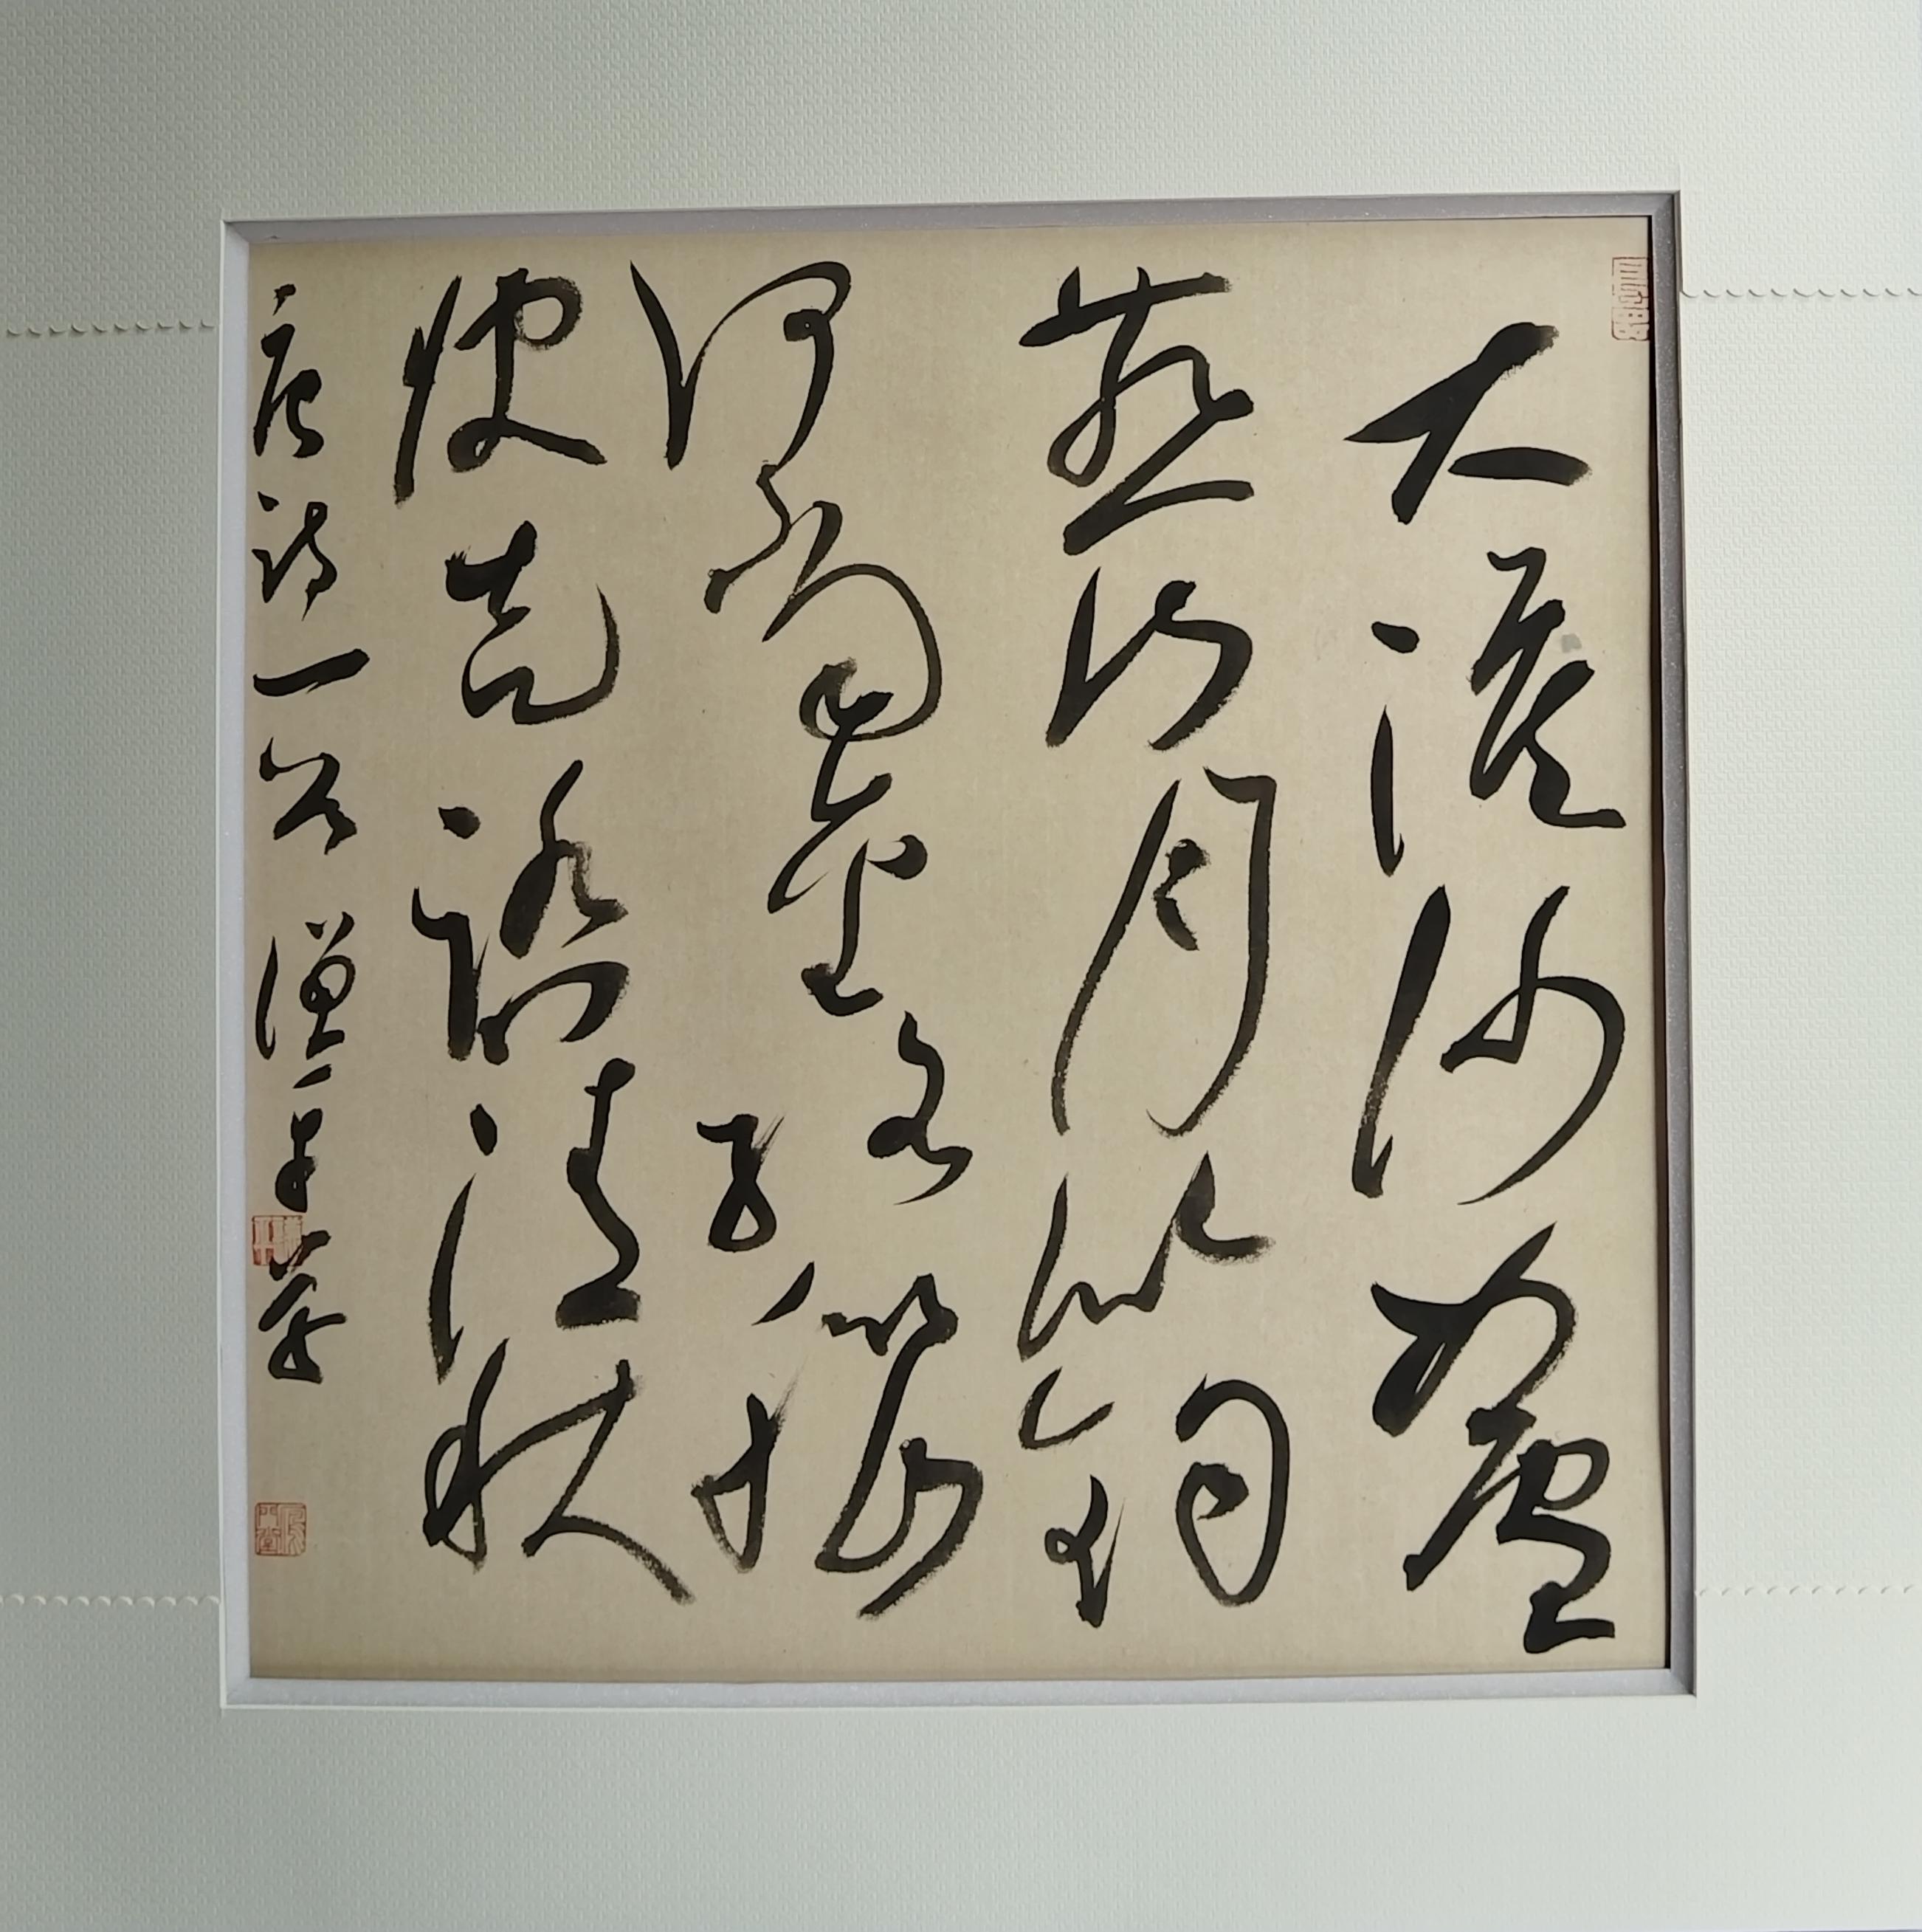 大漠沙如雪
燕山月似鉤
何當金絡腦
快走踏清秋
唐詩一首